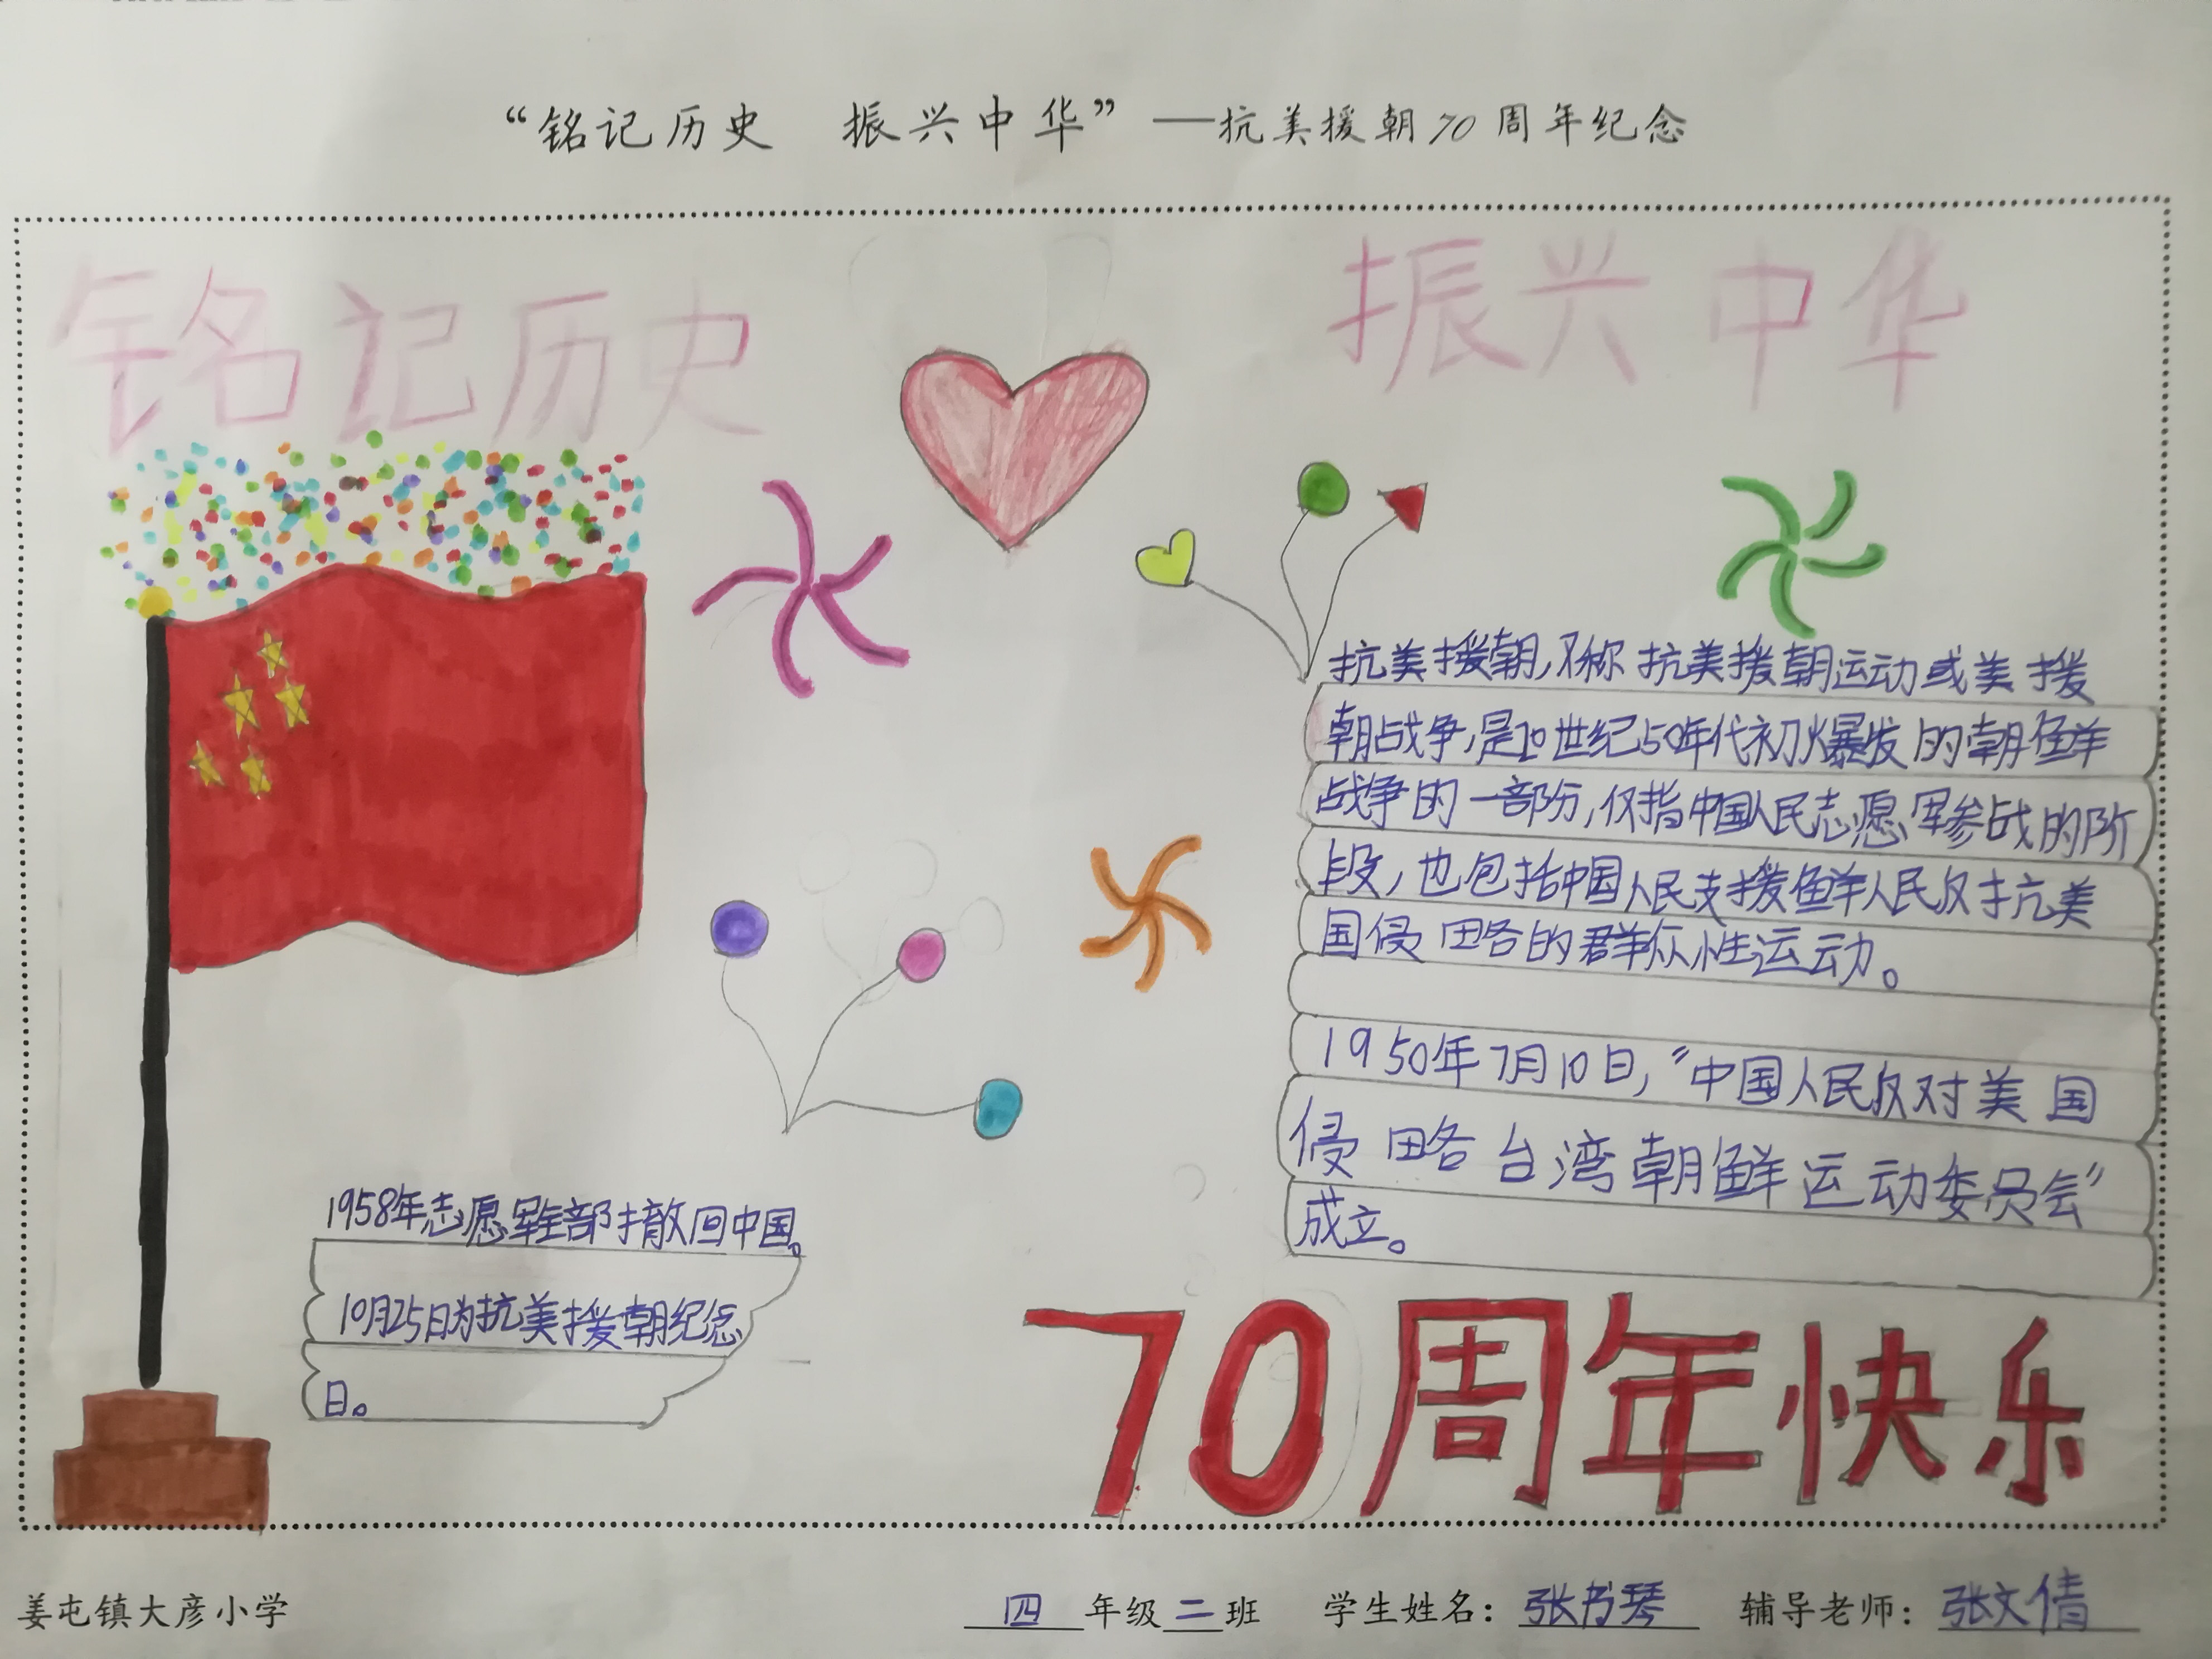 “铭记历史 振兴中华”——抗美援朝70周年纪念
铭记历史
振兴中华
抗美援朝,又称抗美援朝运动或美援
朝战争,是20世纪50年代初爆发的朝鲜
战争的一部分,仅指中国人民志愿军参战的阶
段,也包括中国人民支援鲜人民反抗美
国侵略的群众性运动。
1950年7月10日,“中国人民反对美国
侵略台湾朝鲜运动委员会”
成立。
1958年志愿军全部撤回中国。
10月25日为抗美援朝纪念
日。
70周年快乐
姜屯镇大彦小学 四年级二班 学生姓名:张书琴 辅导老师:张文倩